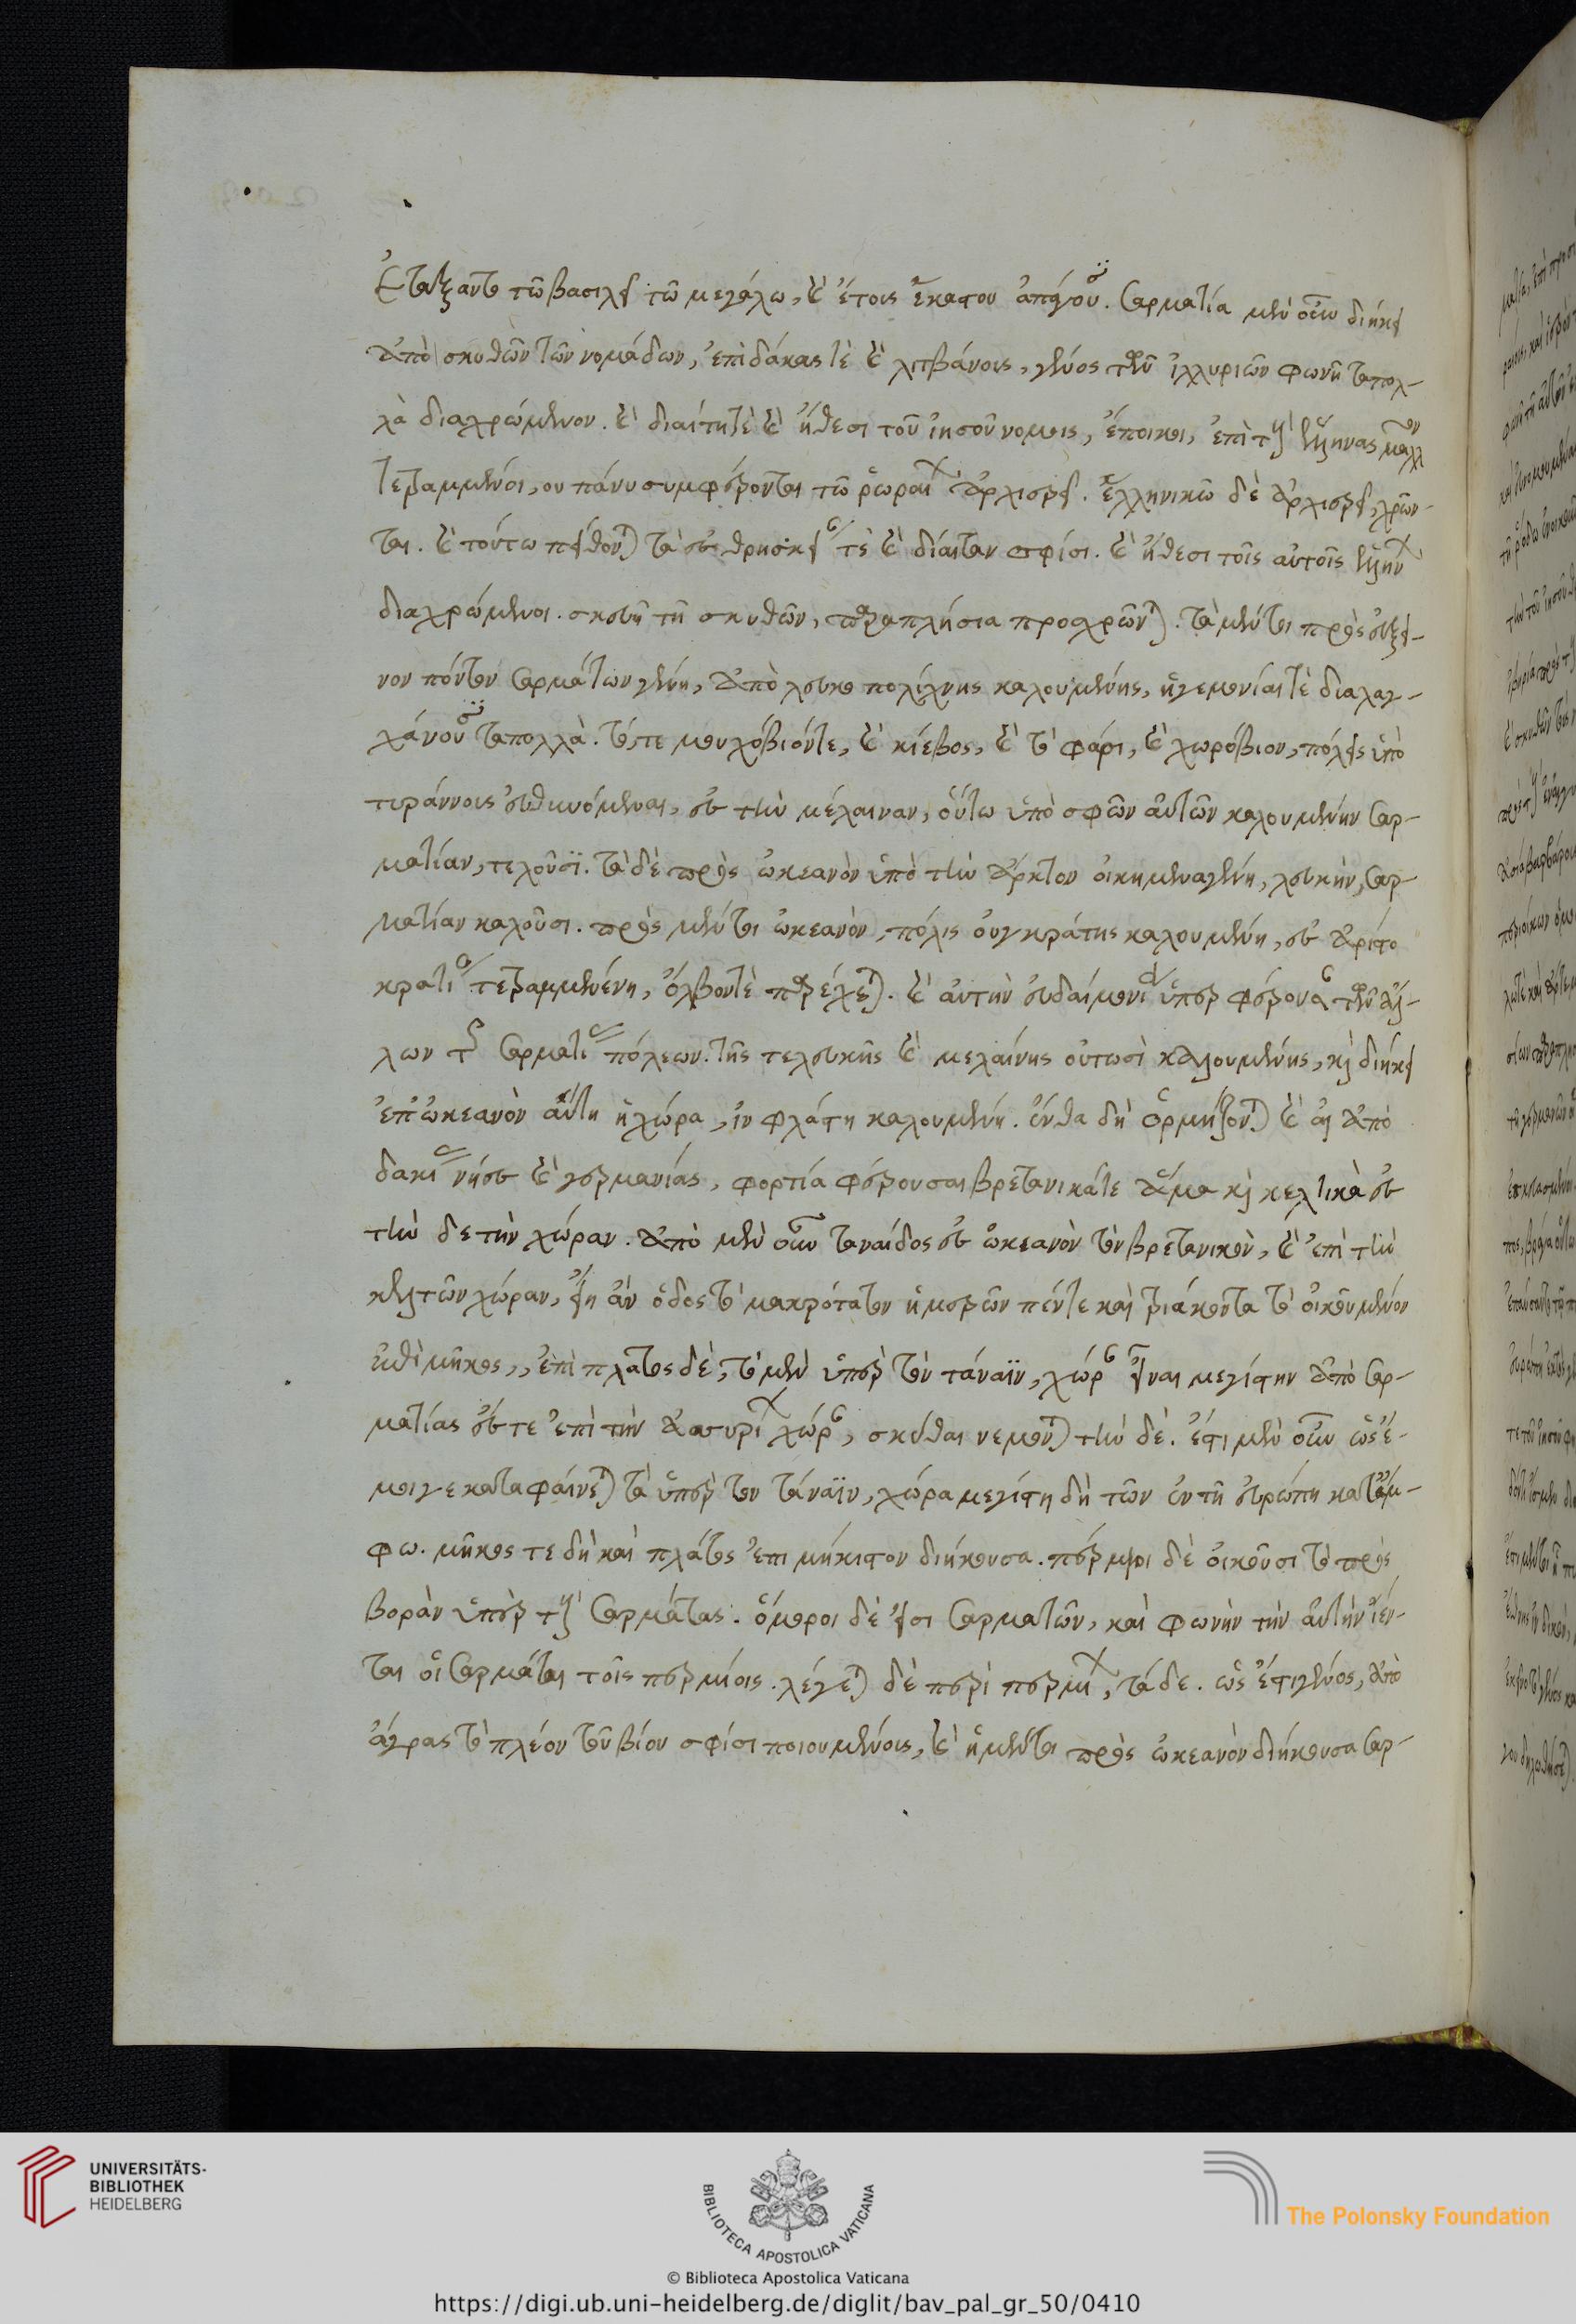 ἐτάξαντο τῶ βασιλεῖ τῶ μεγάλω, καὶ ἔτους ἑκάστου ἀπάγουσι. Σαρματία μὲν οὖν διήκει
ἀπὸ σκυθῶν τῶν νομάδων, ἐπὶ δάκας τὲ καὶ λιτβάνους, γένος τῶν ἰλλυριῶν φωνῆ ταπολ-
λὰ διαχρώμενον. καὶ διαίτητὲ καὶ ἤθεσι τοῦ ἰησοῦ νομοις, ἔποικοι, ἐπὶ τοὺς ἕλληνας μᾶλλον
τετραμμένοι, ου πάνυ συμφέρονται τῶ ῥωμαίων ἀρχιερεῖ. ἑλληνικῶ δὲ ἀρχιερεῖ, χρῶν-
ται. καὶ τούτω πείθονται τὰ ἐς θρησκείαν τὲ καὶ δίαιταν σφίσι. καὶ ἤθεσι τοῖς αὐτοῖς ἑλλήνων
διαχρώμενοι. σκευῆ τῆ σκυθῶν, παραπλήσια προσχρῶνται. τὰ μέντοι πρὸς εὔξει-
νον πόντον Σαρμάτων γένη, ἀπὸ λευκο πολίχνης καλουμένης, ἡγεμονίαι τὲ διαλαγ-
χάνουσι ταπολλὰ. τό, τε μουχόβιόντε, καὶ κίεβος, καὶ τὸ φάρι, καὶ χωρόβιον, πόλεις ὑπὸ
τυράννοις εὐθυνόμεναι, ἐς τὴν μέλαιναν, οὕτω ὑπὸ σφῶν αὐτῶν καλουμένην Σαρ-
ματίαν, τελοῦσι. τὰ δὲ πρὸς ὠκεανὸν ὑπὸ τὴν ἄρκτον οἰκημένα γένη, λευκὴν, Σαρ-
ματίαν καλοῦσι. πρὸς μέντοι ὠκεανὸν, πόλις οὐγκράτης καλουμένη, ἐς ἀριστο
κρατίαν τετραμμένη, ὄλβοντὲ παρέχεται. καὶ αὐτὴν εὐδαιμονία ὑπερφέρουσαν τῶν ἄλ-
λων τῆς Σαρματίας πόλεων. τῆς τελευκῆς καὶ μελαίνης οὑτωσὶ καλουμένης, καὶ διήκει
ἐπ' ὠκεανὸν αὕτη ἡ χώρα, ἰν φλάστη καλουμένη. ἔνθα δὴ ὁρμίζονται καὶ αἱ ἀπὸ
δακίας νῆες καὶ γερμανίας, φορτία φέρουσαι βρετανικάτε ἅμα καὶ κελτικὰ ἐς
τὴν δε τὴν χώραν. ἀπὸ μὲν οὖν ταναίδος ἐς ὠκεανὸν τὸν βρετανικὸν, καὶ ἐπὶ τὴν
κελτῶν χώραν, εἴη ἂν ὁδος τὸ μακρότατον ἡμερῶν πέντε καὶ τριάκοντα τὸ οἰκούμενον
κατὰ μῆκος,, ἐπὶ πλάτος δὲ, τὸ μὲν ὑπὲρ τὸν τάναϊν, χώραν εἶναι μεγίστην ἀπὸ Σαρ-
ματίας ἔς τε ἐπὶ τὴν ἀσσυρίων χώραν, σκύθαι νεμονται τὴν δέ. ἔστι μὲν οὖν ὡς ἔ-
μοιγε καταφαίνεται τὰ ὑπὲρ τον τάναϊν, χώρα μεγίστη δὴ τῶν ἐν τῆ εὐρώπη κατ' ἄμ-
φω. μῆκος τε δὴ καὶ πλάτος ἐπι μήκιστον διήκουσα. πέρμιοι δὲ οἰκοῦσι τὸ πρὸς
βορὰν ὑπὲρ τοὺς Σαρμάτας. ὅμοροι δέ εἰσι Σαρματῶν, καὶ φωνὴν τὴν αὐτὴν ἵεν-
ται οἱ Σαρμάται τοῖς περμίοις. λέγεται δὲ περὶ περμίων, τάδε. ὡς ἔστι γένος, ἀπὸ
ἄγρας τὸ πλέον τοῦ βίου σφίσι ποιουμένοις, καὶ ἡ μέντοι πρὸς ὠκεανὸν διήκουσα Σαρ-
UNIVERSITÄTS-
BIBLIOTHEK
HEIDELBERG
BIBLIOTECA APOSTOLICA VATICANA
The Polonsky Foundation
© Biblioteca Apostolica Vaticana
https://digi.ub.uni-heidelberg.de/diglit/bav_pal_gr_50/0410